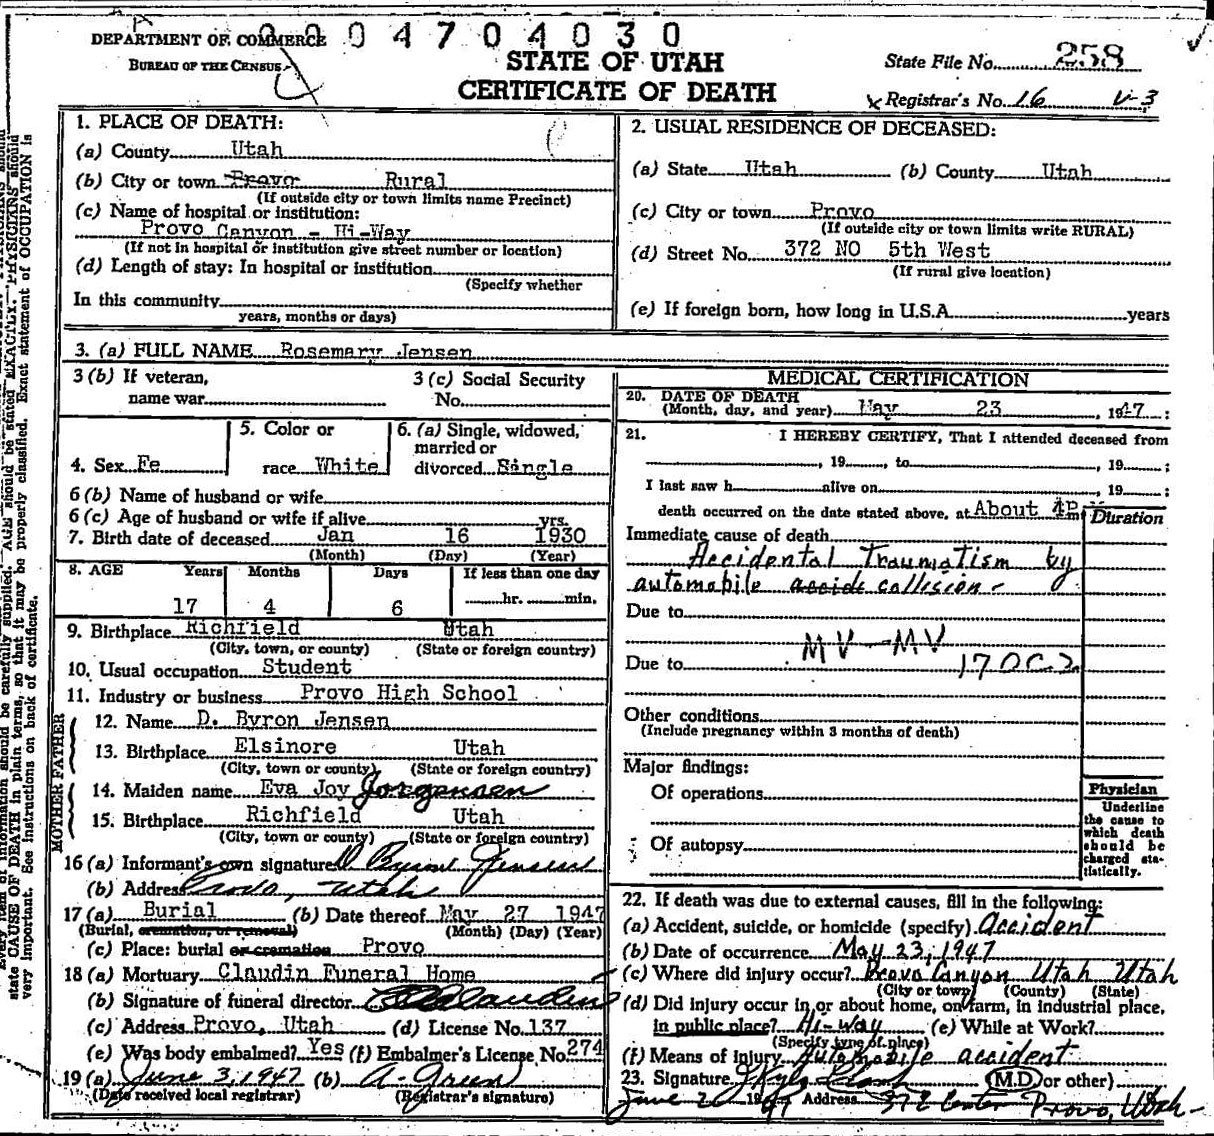 004704030
DEPARTMENT OF COMMERCE
BUREAU OF THE CENSUS
STATE OF UTAH
CERTIFICATE OF DEATH
State File No. 258
Registrar's No. 16 V-3
1. PLACE OF DEATH:
(a) County Utah
(b) City or town Provo Rural
(If outside city or town limits name Precinct)
(c) Name of hospital or institution:
Provo Canyon - Hi-Way
(If not in hospital or institution give street number or location)
(d) Length of stay: In hospital or institution
(Specify whether
In this community
years, months or days)
2. USUAL RESIDENCE OF DECEASED:
(a) State Utah (b) County Utah
(c) City or town Provo
(If outside city or town limits write RURAL)
(d) Street No. 372 NO 5th West
(If rural give location)
(e) If foreign born, how long in U.S.A. years
3. (a) FULL NAME Rosemary Jensen
3 (b) If veteran,
name war
3 (c) Social Security
No.
4. Sex Fe
5. Color or
race White
6. (a) Single, widowed,
married or
divorced Single
6 (b) Name of husband or wife
6 (c) Age of husband or wife if alive yrs.
7. Birth date of deceased Jan 16 1930
(Month) (Day) (Year)
8. AGE Years Months Days If less than one day
17 4 6 hr. min.
9. Birthplace Richfield Utah
(City, town, or county) (State or foreign country)
10. Usual occupation Student
11. Industry or business Provo High School
FATHER
12. Name D. Byron Jensen
13. Birthplace Elsinore Utah
(City, town or county) (State or foreign country)
MOTHER
14. Maiden name Eva Joy Jorgensen
15. Birthplace Richfield Utah
(City, town or county) (State or foreign country)
16 (a) Informant's own signature D Byron Jensen
(b) Address Provo, Utah
17 (a) Burial (b) Date thereof May 27 1947
(Burial, cremation, or removal) (Month) (Day) (Year)
(c) Place: burial or cremation Provo
18 (a) Mortuary Claudin Funeral Home
(b) Signature of funeral director
(c) Address Provo, Utah (d) License No. 137
(e) Was body embalmed? Yes (f) Embalmer's License No. 274
19 (a) June 3, 1947 (b) A. Green
(Date received local registrar) (Registrar's signature)
MEDICAL CERTIFICATION
20. DATE OF DEATH
(Month, day, and year) May 23, 1947;
21. I HEREBY CERTIFY, That I attended deceased from
, 19 , to , 19 ;
I last saw h alive on , 19 ;
death occurred on the date stated above, at About 4P m
Duration
Immediate cause of death
Accidental Traumatism by
automobile accide collision -
Due to
MV-MV
Due to 170C2
Other conditions
(Include pregnancy within 3 months of death)
Major findings:
Of operations
Of autopsy
Physician
Underline
the cause to
which death
should be
charged sta-
tistically.
22. If death was due to external causes, fill in the following:
(a) Accident, suicide, or homicide (specify) Accident
(b) Date of occurrence May 23, 1947
(c) Where did injury occur? Provo Canyon Utah Utah
(City or town) (County) (State)
(d) Did injury occur in or about home, on farm, in industrial place,
in public place? Hi-Way (e) While at Work?
(Specify type of place)
(f) Means of injury Automobile accident
23. Signature (M.D. or other)
June 2 1947 Address Center Provo, Utah-
state CAUSE OF DEATH in plain terms, so that it may be properly classified. Exact statement of OCCUPATION is
very important. See instructions on back of certificate.